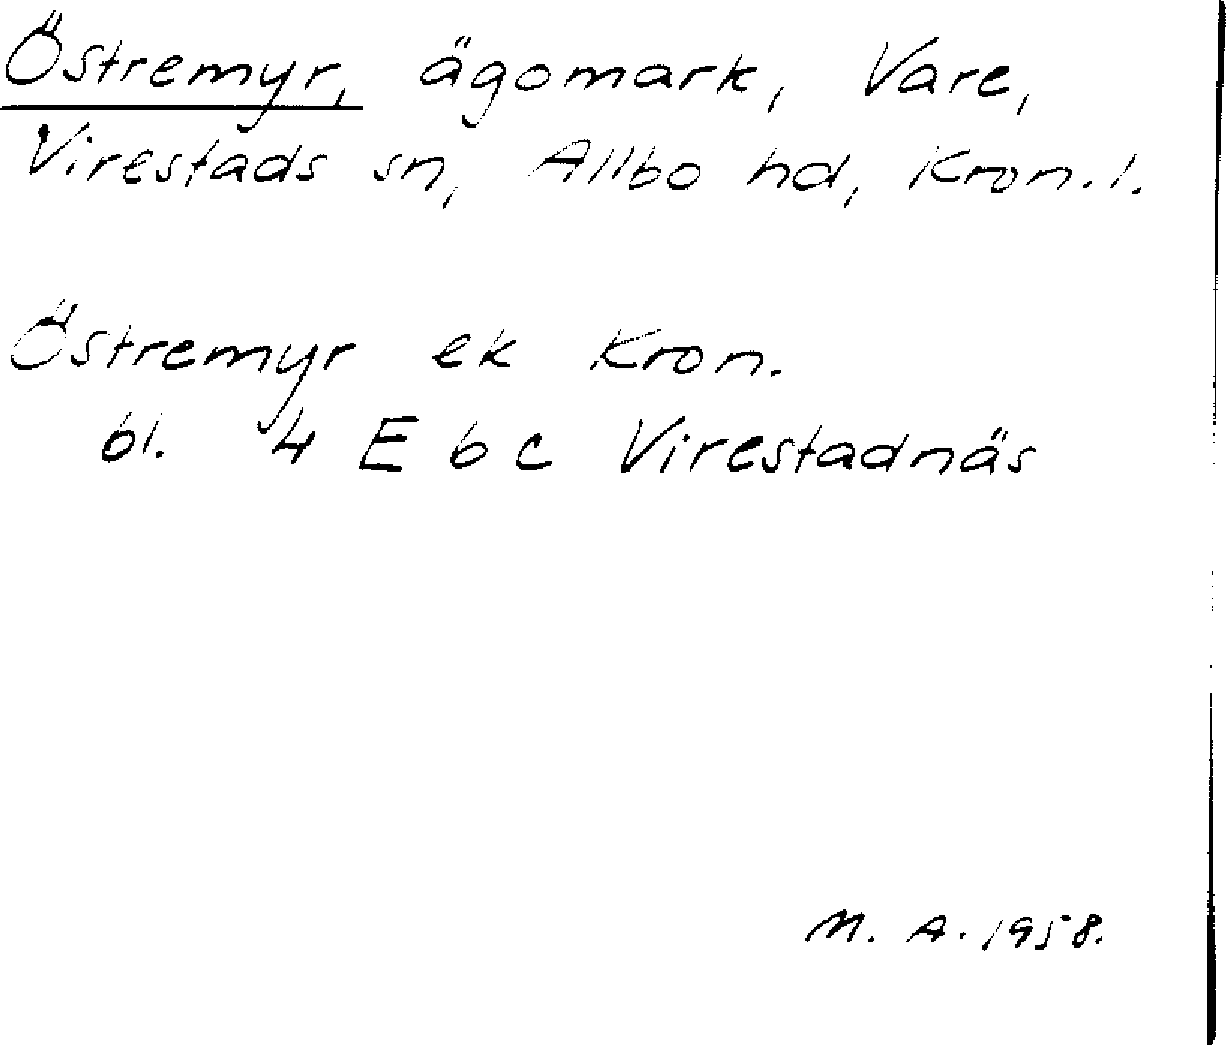 Östremyr, ägomark, Vare,
Virestads sn, Allbo hd, Kron. l.
Östremyr ek Kron.
bl. 4 E b c Virestadnäs
M. A. 1958.